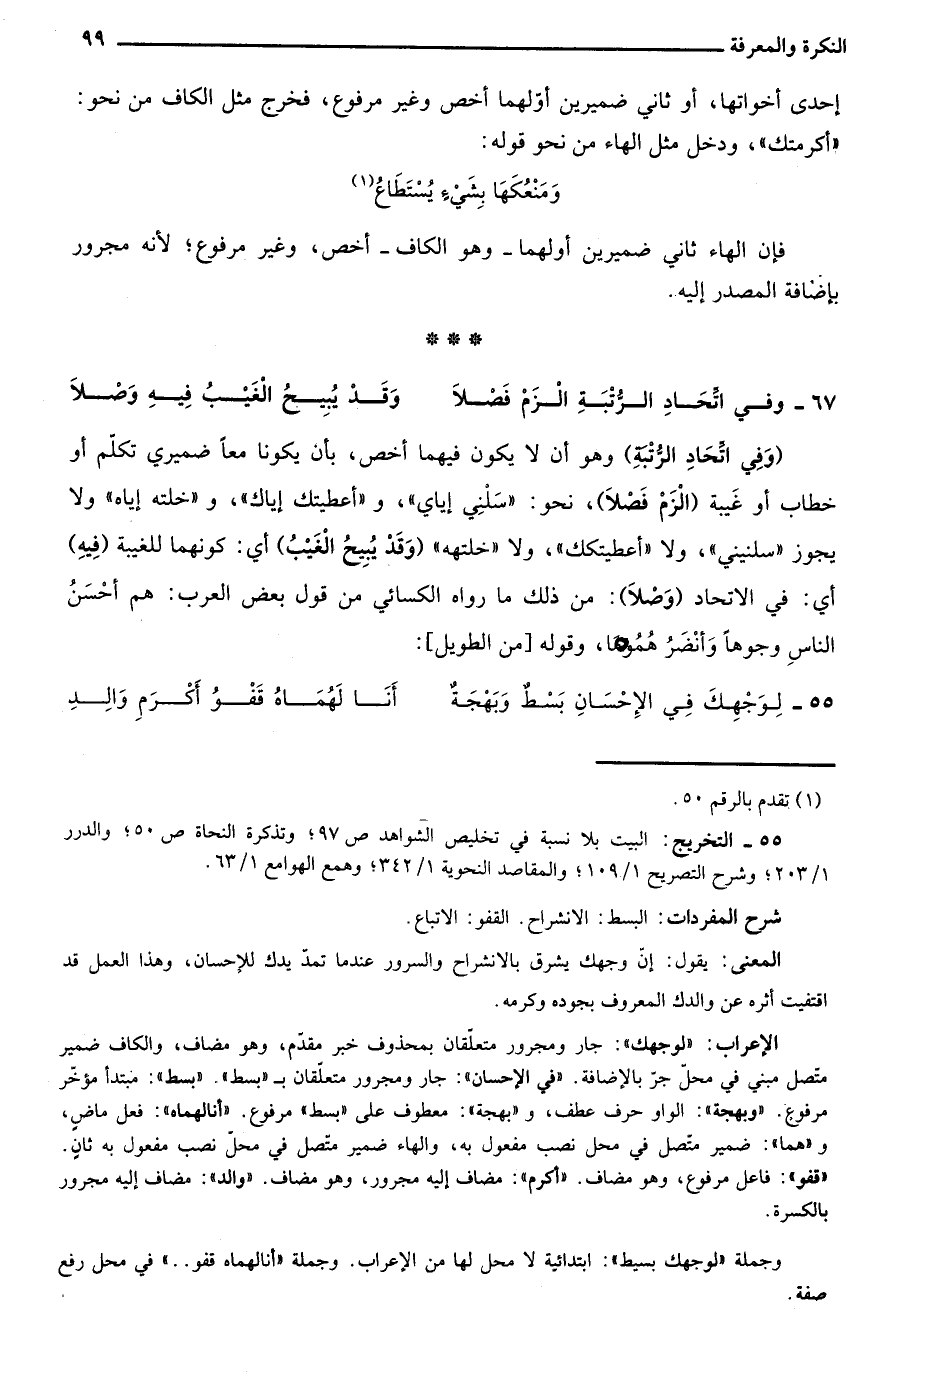 النكرة والمعرفة ٩٩
إحدى أخواتها، أو ثاني ضميرين أوّلهما أخص وغير مرفوع، فخرج مثل الكاف من نحو:
«أكرمتك»، ودخل مثل الهاء من نحو قوله:
وَمَنْعُكَهَا بِشَيْءٍ يُسْتَطَاعُ(١)
فإن الهاء ثاني ضميرين أولهما ـ وهو الكاف ـ أخص، وغير مرفوع؛ لأنه مجرور
بإضافة المصدر إليه.
* * *
٦٧ ـ وفــي اتِّحَـادِ الـرُّتْبَـةِ الْـزَمْ فَصْـلاَ وَقَـدْ يُبِيـحُ الْغَيْـبُ فِيـهِ وَصْـلاَ
(وَفِي اتِّحَادِ الرُّتْبَةِ) وهو أن لا يكون فيهما أخص، بأن يكونا معاً ضميري تكلّم أو
خطاب أو غَيبة (الْزَمْ فَصْلاَ)، نحو: «سَلْنِي إياي»، و «أعطيتك إياك»، و «خلته إياه» ولا
يجوز «سلنيني»، ولا «أعطيتكك»، ولا «خلتهه» (وَقَدْ يُبِيحُ الْغَيْبُ) أي: كونهما للغيبة (فِيهِ)
أي: في الاتحاد (وَصْلاَ): من ذلك ما رواه الكسائي من قول بعض العرب: هم أحْسَنُ
الناسِ وجوهاً وَأنْضَرُ هُمُوهَا، وقوله [من الطويل]:
٥٥ ـ لِـوَجْهِـكَ فِـي الإحْسَـانِ بَسْـطٌ وَبَهْجَـةٌ أَنَـا لَهُمَـاهُ قَفْـوُ أَكْـرَمِ وَالِـدِ
(١) تقدم بالرقم ٥٠.
٥٥ ـ التخريج: البيت بلا نسبة في تخليص الشواهد ص ٩٧؛ وتذكرة النحاة ص ٥٠؛ والدرر
٢٠٣/١؛ وشرح التصريح ١٠٩/١؛ والمقاصد النحوية ٣٤٢/١؛ وهمع الهوامع ٦٣/١.
شرح المفردات: البسط: الانشراح. القفو: الاتباع.
المعنى: يقول: إنّ وجهك يشرق بالانشراح والسرور عندما تمدّ يدك للإحسان، وهذا العمل قد
اقتفيت أثره عن والدك المعروف بجوده وكرمه.
الإعراب: «لوجهك»: جار ومجرور متعلّقان بمحذوف خبر مقدّم، وهو مضاف، والكاف ضمير
متّصل مبني في محلّ جرّ بالإضافة. «في الإحسان»: جار ومجرور متعلّقان بـ«بسط». «بسط»: مبتدأ مؤخّر
مرفوع. «وبهجة»: الواو حرف عطف، و «بهجة»: معطوف على «بسط» مرفوع. «أنالهماه»: فعل ماضٍ،
و «هما»: ضمير متّصل في محل نصب مفعول به، والهاء ضمير متّصل في محلّ نصب مفعول به ثانٍ.
«قفو»: فاعل مرفوع، وهو مضاف. «أكرم»: مضاف إليه مجرور، وهو مضاف. «والد»: مضاف إليه مجرور
بالكسرة.
وجملة «لوجهك بسيط»: ابتدائية لا محل لها من الإعراب. وجملة «أنالهماه قفو..» في محل رفع
صفة.